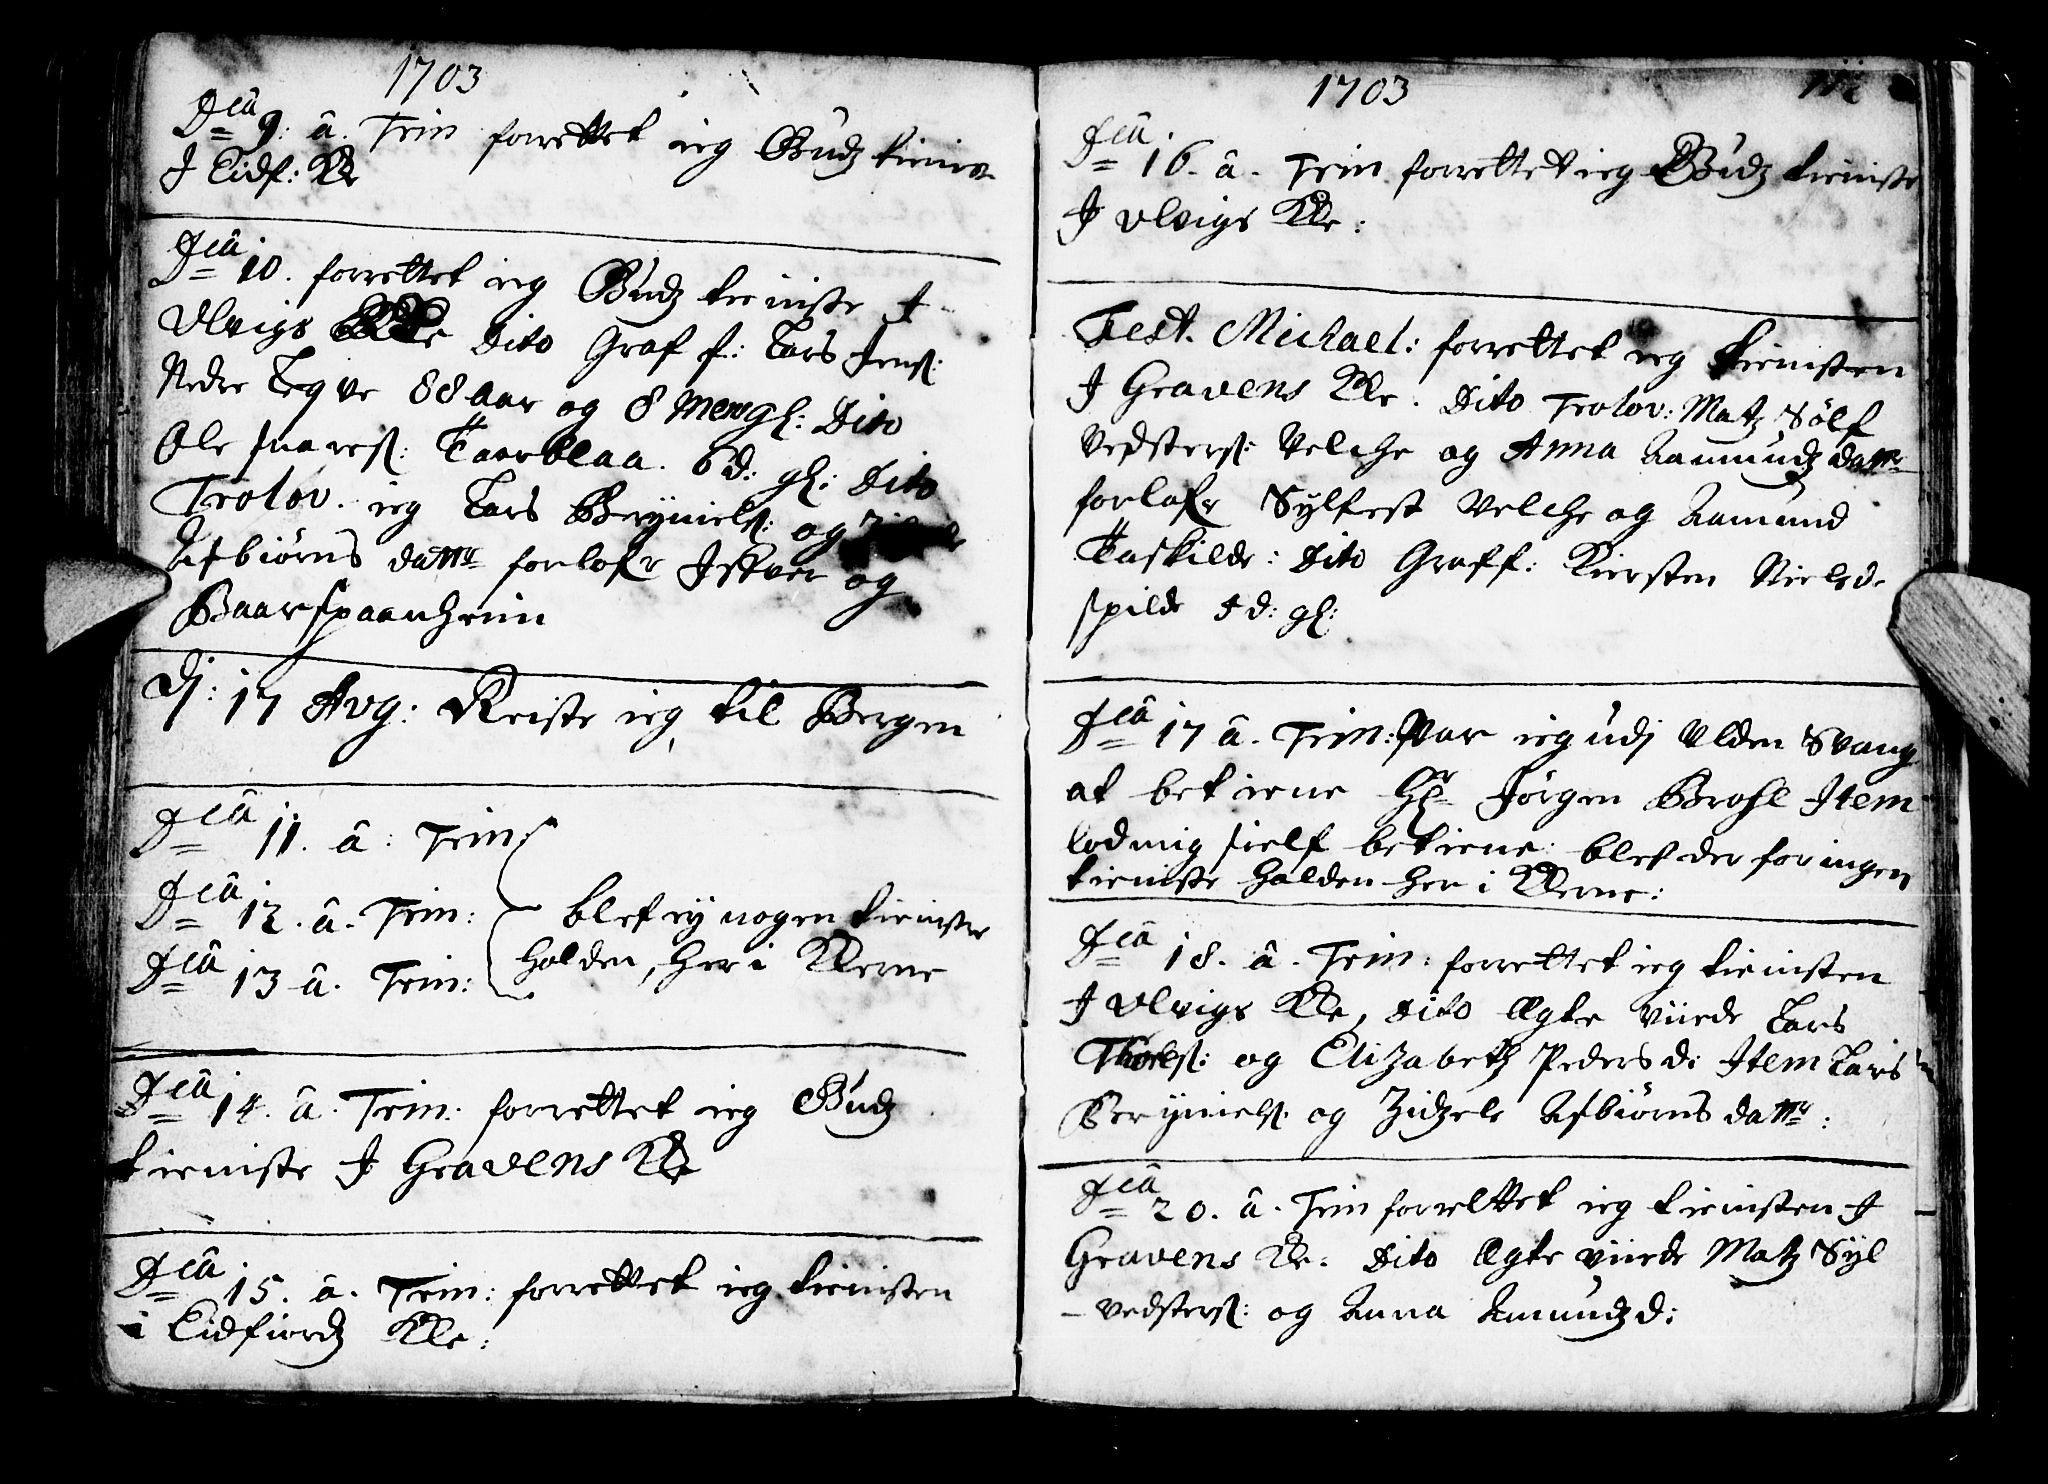 1703
Dca 9. â. Trin forrettet ieg Gudz tieniste
J Eidf: Kle
Dca 10. forrettet ieg Gudz tieniste J
Ulvigs Kle Dito Graf f: Lars Jens:
Nedre Leqve 88 aar og 8 Men gl: Dito
Ole Taarblaa. 6 d: gl: Dito
Trolov. ieg Lars Bryniels: og
Asbiørns dattr forlofr Iffver og
Baar Spaanheim
Dj: 17 Avg: Reiste ieg til Bergen
Dca 11. â: Trin:
Dca 12. â. Trin: blef ey nogen tieniste
Dca 13 â. Trin: holden, her i Klerne
Dca 14. â. Trin: forrettet ieg Gudz
tieniste J Gravens Kle
Dca 15. â. Trin: forrettet ieg tienisten
i Eidfiordz Kle:
1703
Dca 16. â. Trin forrettet ieg Gudz tieniste
J Ulvigs Kle:
Fest. Michael: forrettet ieg tienisten
J Gravens Kle. Dito Trolov: Matz Sölf
Vedsters: Velche og Anna Aamundz dattr
forlofr Sylfest Velche og Aamund
Taskilde: Dito Graff: Kiersten Nielsd.
Spilde d: gl:
Dca 17 â. Trin: Var ieg udj Ulden Svang
at betiene Hr Jörgen Brose Item
lod mig sielf betiene: blef der for ingen
tieniste holden her i Klerne:
Dca 18. â. Trin: forrettet ieg tienisten
J Ulvigs Kle, Dito Egte viede Lars
Thoels: og Elizabetz Peders d: Item Lars
Brÿniels: og Zidzele Asbiørns dattr:
Dca 20. â. Trin forrettet ieg tienisten J
Gravens Kle: Dito Egte viede Matz Syl
- vedsters: og Anna Amundz d: